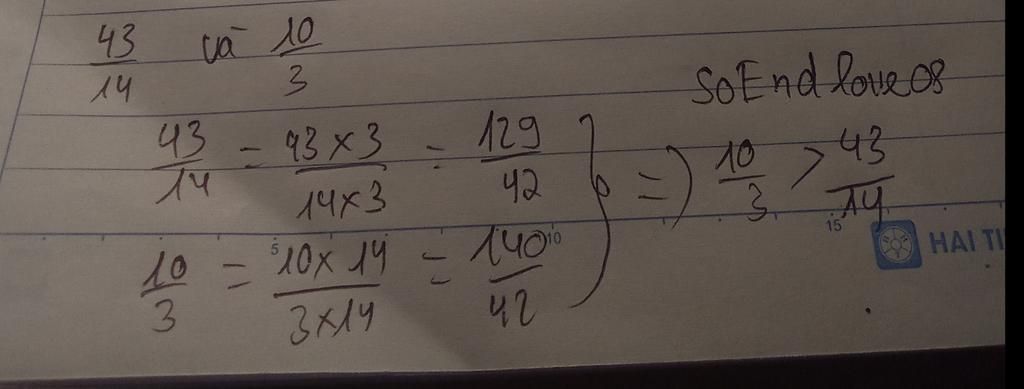 43/14 và 10/3
SoEndlove08
43/14 = 43×3/14×3 = 129/42
10/3 = 10×14/3×14 = 140/42
} => 10/3 > 43/14
5 10 15
HAI TI